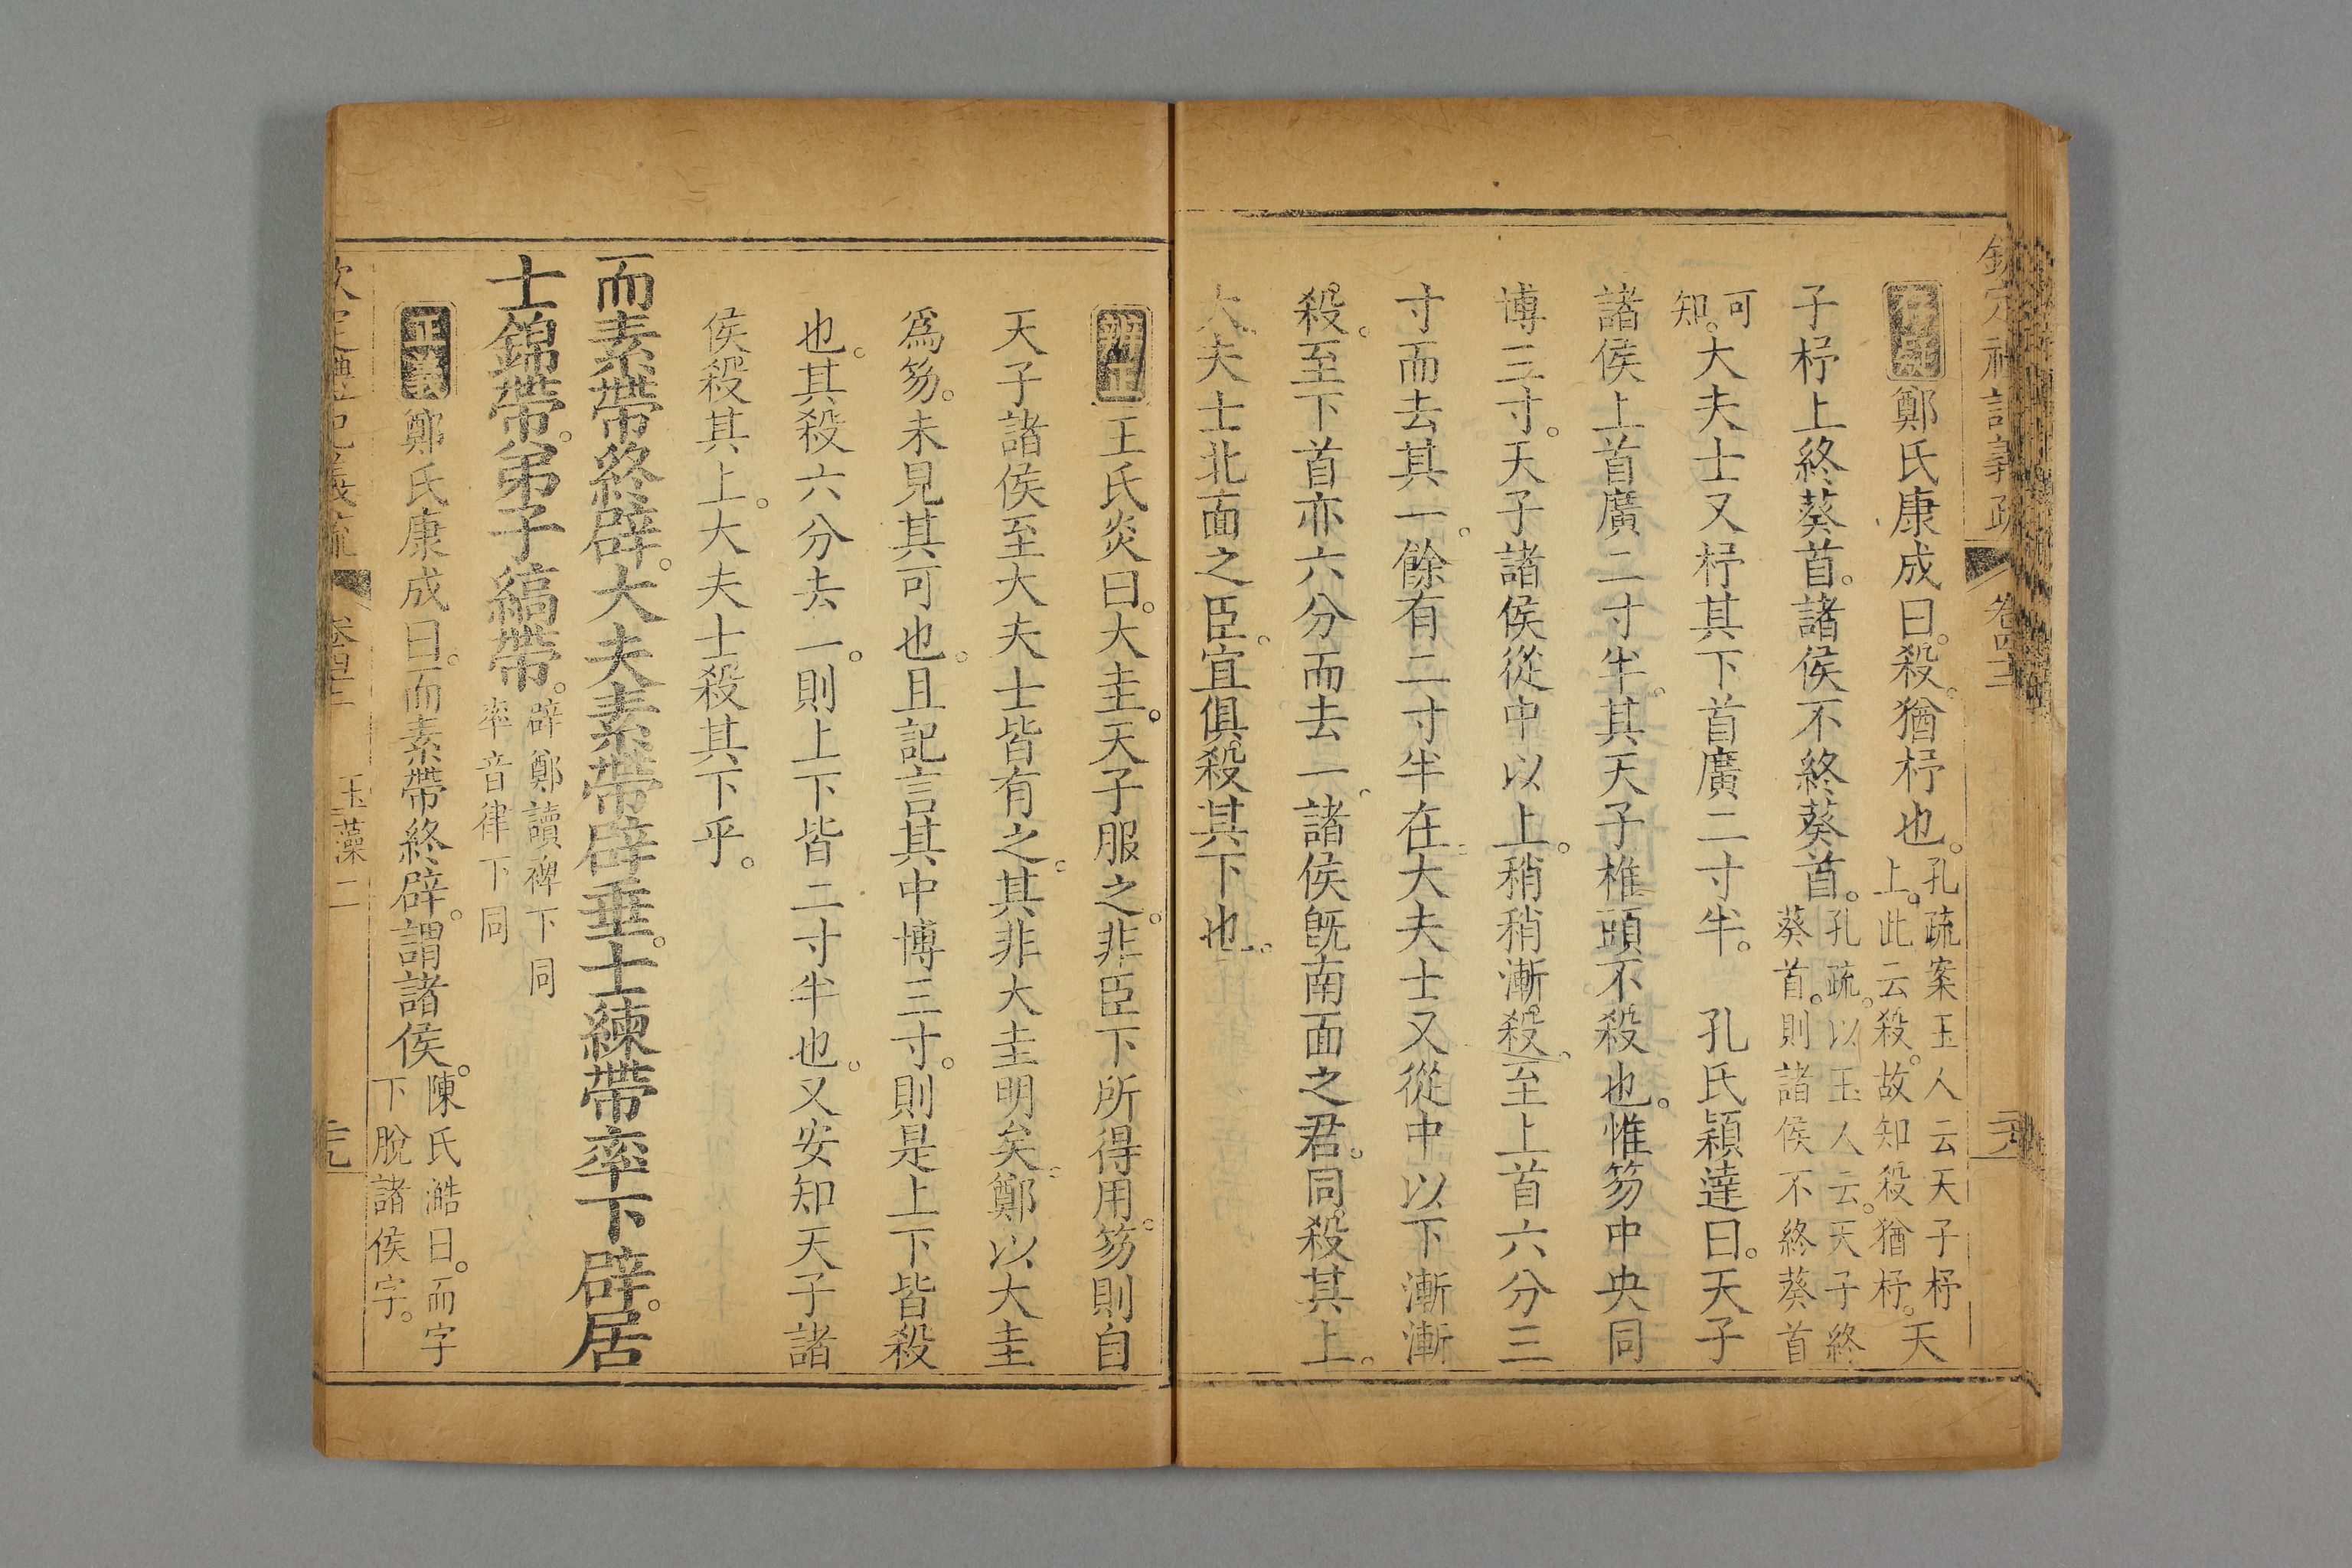 欽定禮記義疏 卷四十三
存疑 鄭氏康成曰。殺。猶杼也。孔疏案玉人云天子杼上。此云殺。故知殺猶杼。天
子杼上終葵首。諸侯不終葵首。孔疏。以玉人云。天子終葵首。則諸侯不終葵首
可知。大夫士又杼其下首廣二寸半。 孔氏穎達曰。天子
諸侯上首廣二寸半。其天子椎頭不殺也。惟笏中央同
博三寸。天子諸侯從中以上。稍稍漸殺。至上首六分三
寸而去其一。餘有二寸半在。大夫士又從中以下漸漸
殺。至下首亦六分而去一。諸侯旣南面之君。同殺其上。
大夫士北面之臣。宜俱殺其下也。
辨正 王氏炎曰。大圭。天子服之。非臣下所得用。笏則自
天子諸侯至大夫士皆有之。其非大圭明矣。鄭以大圭
爲笏。未見其可也。且記言其中博三寸。則是上下皆殺
也。其殺六分去一。則上下皆二寸半也。又安知天子諸
侯殺其上。大夫士殺其下乎。
而素帶終辟。大夫素帶辟垂。士練帶率下辟。居
士錦帶。弟子縞帶。辟鄭讀裨下同率音律下同
正義 鄭氏康成曰。而素帶終辟。謂諸侯。陳氏澔曰。而字下脫諸侯字。
欽定禮記義疏 卷四十三 玉藻二 元